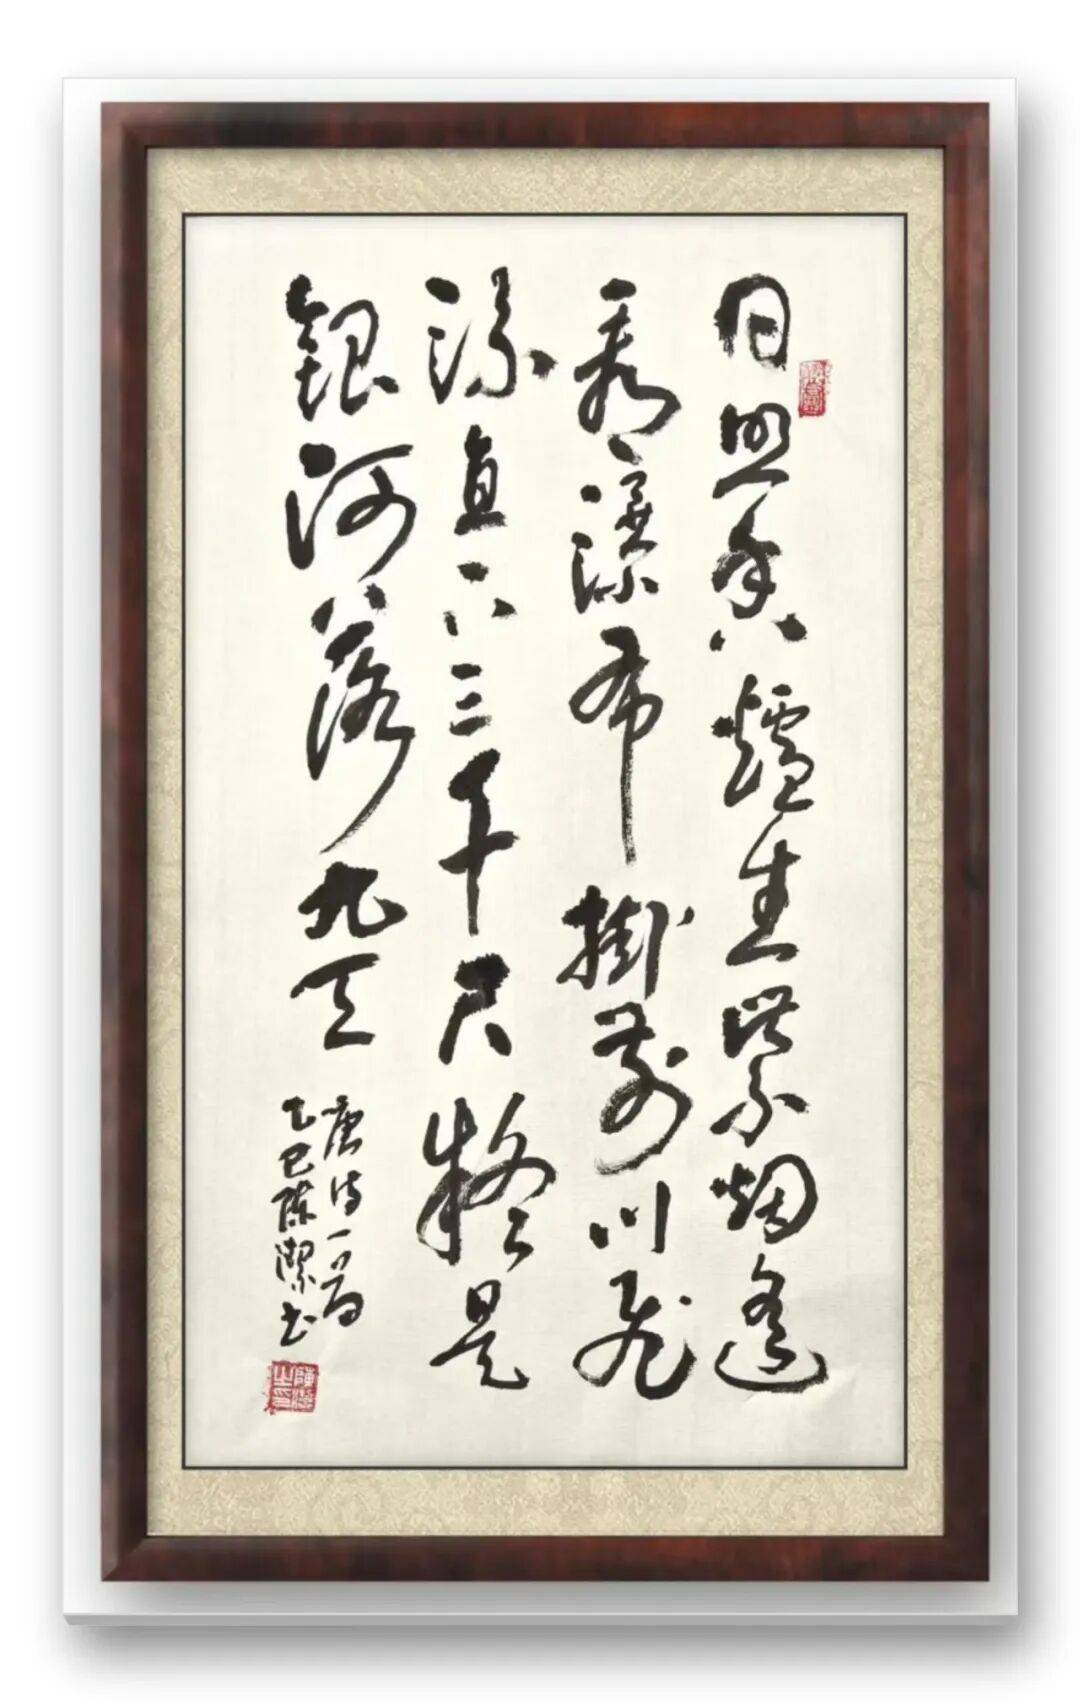 日照香爐生紫烟遙
看瀑布掛前川飛
流直下三千尺疑是
銀河落九天
唐诗一首
乙巳陈潔书